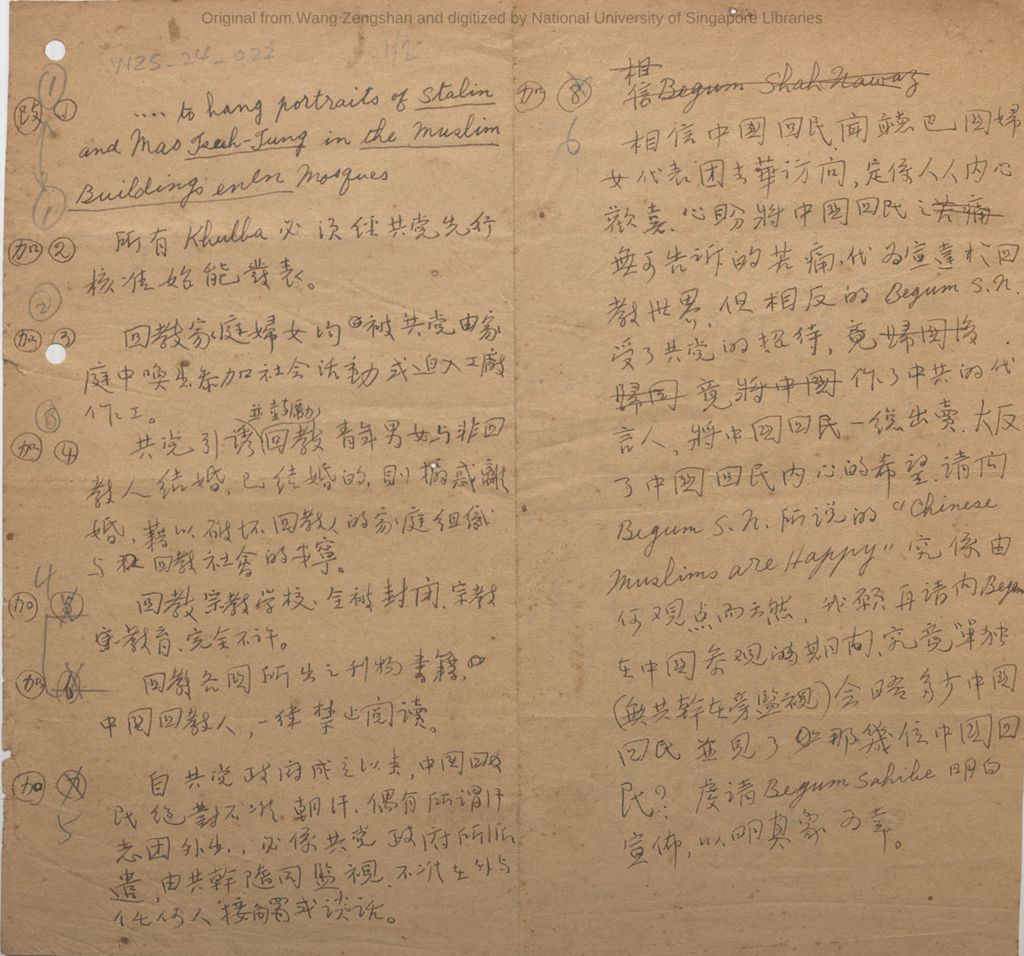 Original from Wang Zengshan and digitized by National University of Singapore Libraries
WZS_24_022
1/2
改 ①
.... to hang portraits of Stalin
and Mao Tseh-Tung in the Muslim
Buildings even Mosques
加 ②
所有 Khutba 必須經共党先行
核准始能發表。
加 ③
回教家庭婦女均被共党由家
庭中喚出参加社会活動或迫入工廠
作工。
並鼓勵
加 ④
共党引誘回教青年男女与非回
教人結婚,已結婚的,則
婚,藉以破坏回教人的家庭组織
与回教社會的安寧。
4
加
回教宗教学校全被封闭,宗教
教育完全不许。
加 6
回教各国所出之刊物書籍,
中国回教人,一律禁止閲读。
加
5
自共党政府成立以来,中国回
民绝對不准朝汗,偶有所谓汗
志团外出,必係共党政府所
遣,由共幹随同監視,不准在外与
任何人接觸或谈话。
加 8
6
相信 Begum Shah Nawaz
相信中國回民聞聽巴国婦
女代表团去華访问,定係人人内心
歡喜,心盼將中国回民之苦痛
無可告诉的苦痛,代为宣達於回
教世界,但相反的 Begum S.N.
受了共党的招待,竟歸国後
歸国 竟將中国 作了中共的代
言人,將中国回民一出賣,大反
了中國回民内心的希望,请问
Begum S.N. 所说的 "Chinese
Muslims are Happy" 究係由
何观点而云然,我願再请问 Begum
在中国参观的期间,究竟單独
(無共幹在旁監視)会晤多少中国
回民並見了那幾位中国回
民? 请 Begum Sahibe 明白
宣佈,以明真象为幸。